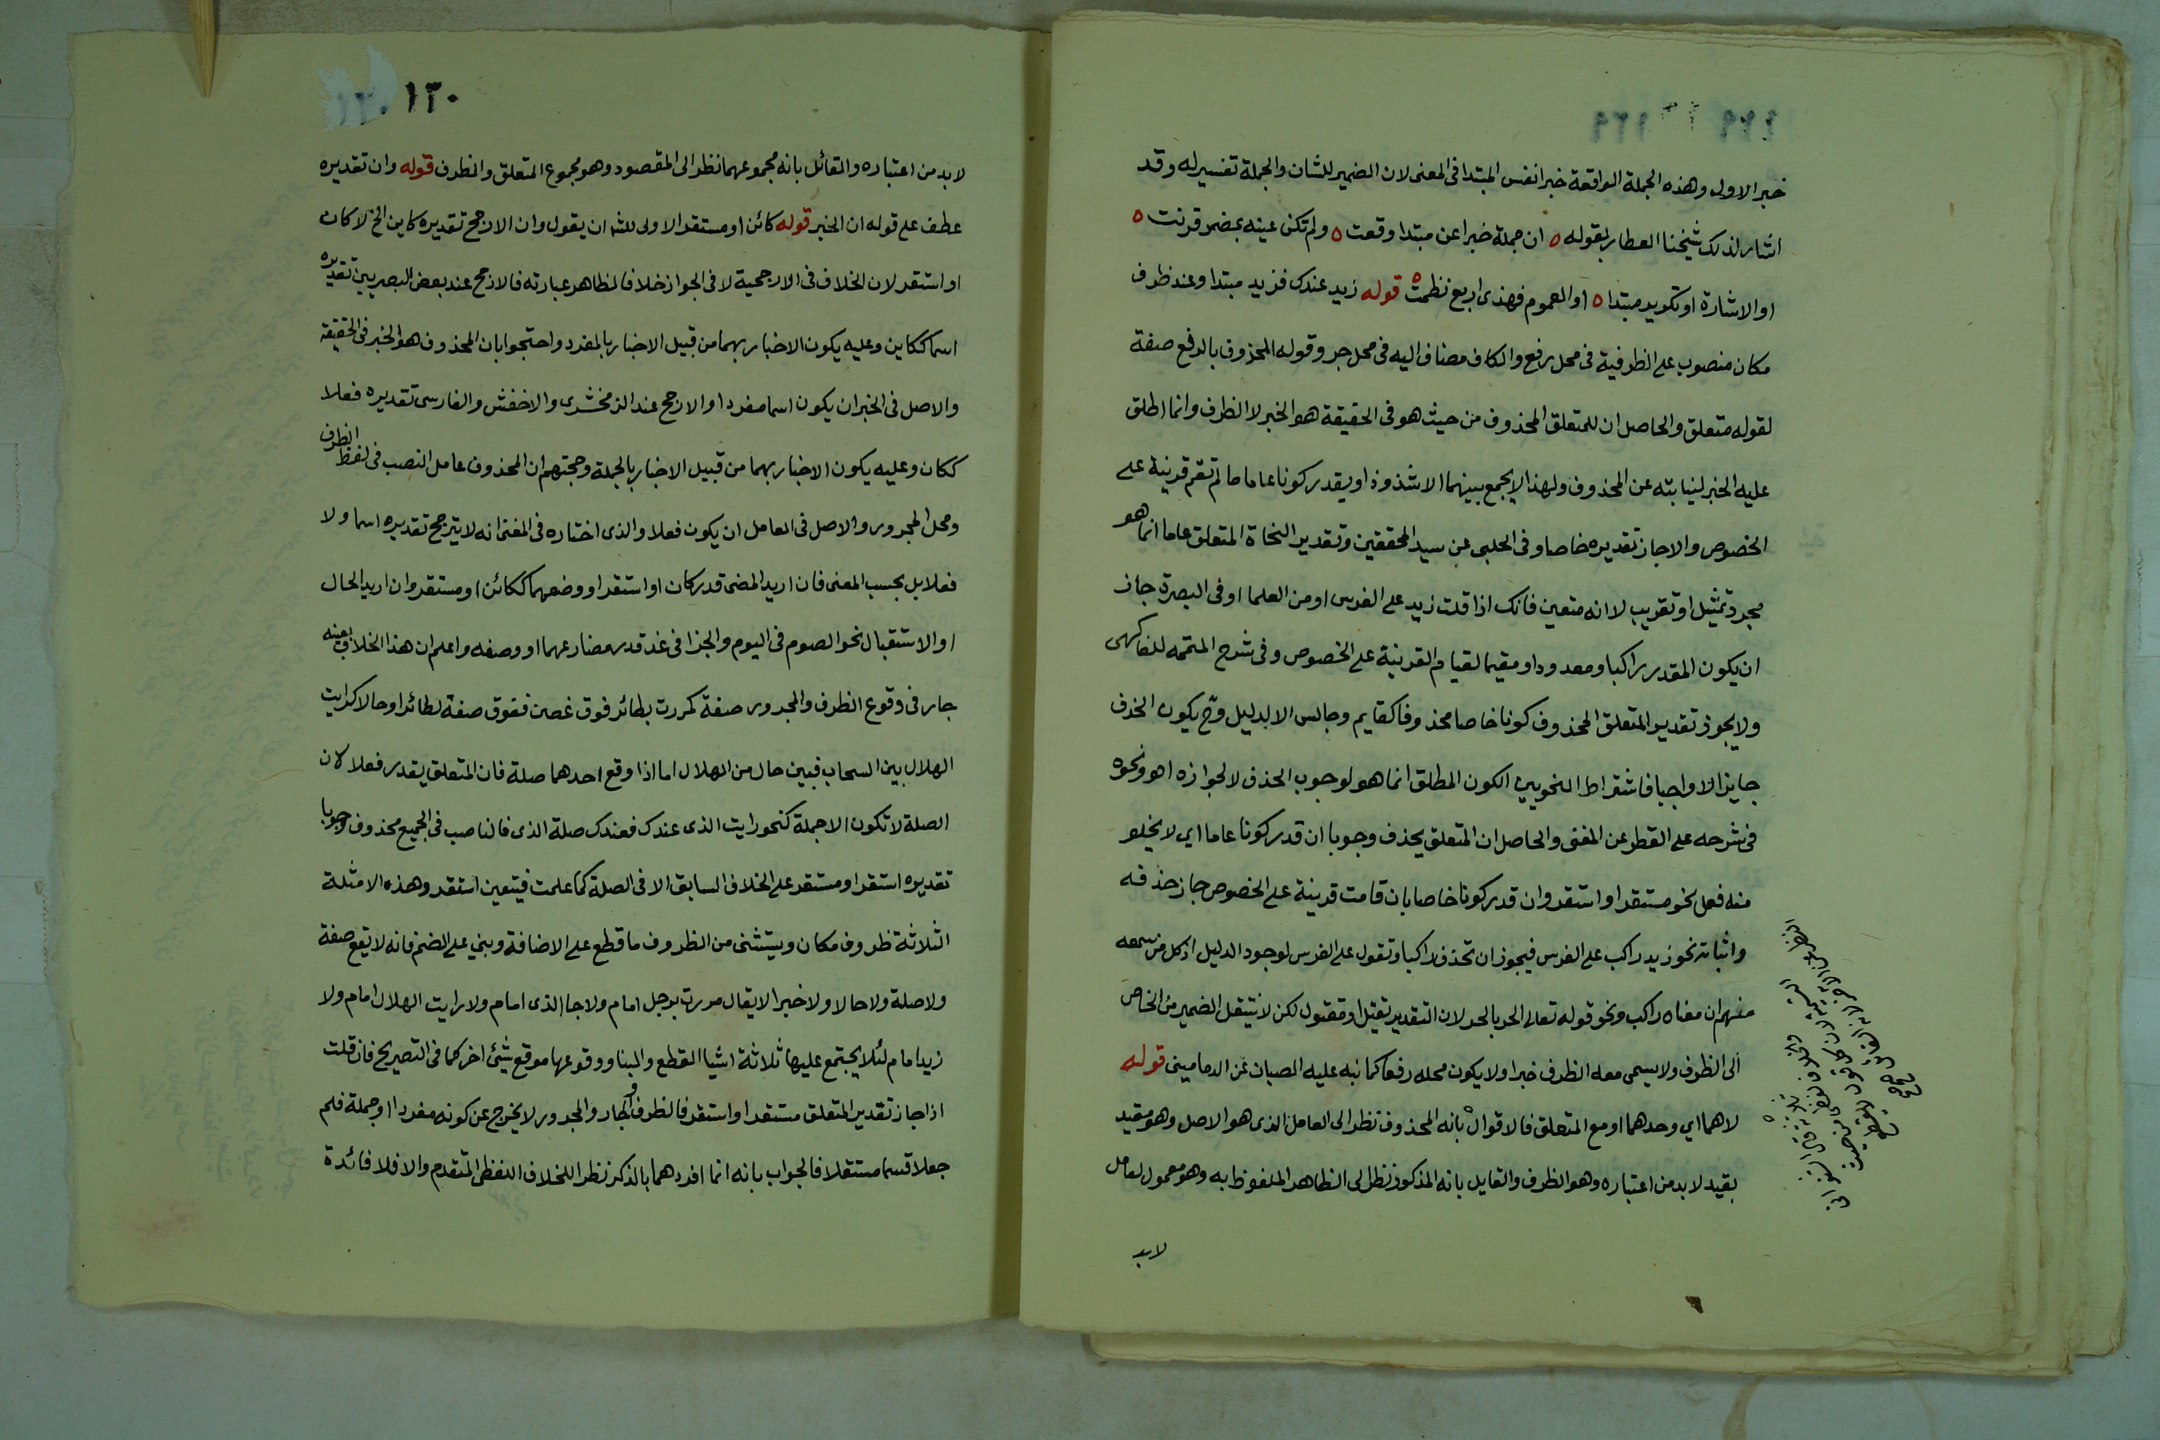 خبر الاولى وهذه الجملة الواقعة خبرا نفس المبتدا فى المعنى لان الضمير للشان والجملة تفسير له وقد
اشار لذلك شيخنا العطار بقوله ٥ ان جملة خبرا عن مبتدا وقعت ٥ ولم تكن عينه بمضمر قرنت ٥
او الاشارة او تكوير مبتدا ٥ او العموم فهذى اربع نظمت ٥ قوله زيد عندك فزيد مبتدا وعند ظرف
مكان منصوب على الظرفية فى محل رفع والكاف مضاف اليه فى محل جر وقوله المحذوف بالرفع صفة
لقوله متعلق والحاصل ان للمتعلق المحذوف من حيث هو فى الحقيقة هو الخبر لا الظرف وانما اطلق
عليه الخبر لنيابته عن المحذوف ولهذا لا يجمع بينهما الا شذوذا ويقدر كونا عاما ما لم تقم قرينة على
الخصوص والا جاز تقديره خاصا وفى الحلبى عن سيد المحققين وتقدير النحاة المتعلق عاما انما هو
مجرد تمثيل او تقريب لا انه متعين فانك اذا قلت زيد على الفرس او من العلما او فى البصرة جاز
ان يكون المقدر راكبا ومعدودا ومقيما لقيام القرينة على الخصوص وفى شرح المتممه للفاكهى
ولا يجوز تقدير المتعلق المحذوف كونا خاصا محذوفا كقايم وجالس الا بدليل وح يكون الحذف
جايزا لا واجبا فاشتراط النحويين الكون المطلق انما هو لوجوب الحذف لا لجوازه اهو ونحوه
فى شرحه على القطر عن المغنى والحاصل ان المتعلق يحذف وجوبا ان قدر كونا عاما اي لا يخلو
منه فعل نحو مستقر او استقر وان قدر كونا خاصا بان قامت قرينة على الخصوص جاز حذفه
واثباته نحو زيد راكب على الفرس فيجوز ان تحذف راكبا وتقول على الفرس لوجود الدليل اذ كل من سمعه
فهم ان معناه راكب ونحو قوله تعالى الحر بالحر لان التقدير تقتل او مقتول لكن لا ينتقل الضمير من الخاص
الى الظرف ولا يسمى معه الظرف خبرا ولا يكون محله رفعا كما نبه عليه الصبان عن الدمامينى قوله
لا هما اي وحدهما او مع المتعلق فالاقوال بانه المحذوف نظر الى العامل الذى هو الاصل وهو مقيد
بقيد لا بد من اعتباره وهو الظرف والقايل بانه المذكور نظر الى الظاهر الملفوظ به وهو معمول لعامل
لابد
١٣٠
لا بد من اعتباره والقائل بانه مجموعهما نظر الى المقصود وهو مجموع المتعلق والظرف قوله وان تقديره
عطف على قوله ان الخبر قوله كائن او مستقر الاولى للش ان يقول وان الارجح تقديره كاين الخ لا كان
او استقر لان الخلاف فى الارجحية لا فى الجواز خلافا لظاهر عبارته فالارجح عند بعض البصريين تقديره
اسما ككاين وعليه يكون الاخبار بهما من قبيل الاخبار بالمفرد واحتجوا بان المحذوف هو الخبر فى الحقيقة
والاصل فى الخبر ان يكون اسما مفردا والارجح عند الزمخشرى والاخفش والفارسى تقديره فعلا
ككان وعليه يكون الاخبار بهما من قبيل الاخبار بالجملة وحجتهم ان المحذوف عامل النصب فى لفظ الظرف
ومحل المجرور والاصل فى العامل ان يكون فعلا والذى اختاره فى المغنى انه لا يترجح تقديره اسما ولا
فعلا بل بحسب المعنى فان اريد المضى قدر كان او استقر او وصفهما ككائن او مستقر وان اريد الحال
او الاستقبال نحو الصوم فى اليوم والجزا فى غد قدر مضارعهما او وصفه واعلم ان هذا الخلاف بعينه
جار فى وقوع الظرف والمجرور صفة كمررت بطائر فوق غصن ففوق صفة لطائر او حالا كرايت
الهلال بين السحاب فبين حال من الهلال اما اذا وقع احدهما صلة فان المتعلق يقدر فعلا لان
الصلة لا تكون الا جملة كنحو رايت الذى عندك فعندك صلة الذى فالناصب فى الجميع محذوف وجوبا
تقديره استقر او مستقر على الخلاف السابق الا فى الصلة كما علمت فيتعين استقر وهذه الامثلة
الثلاثة ظروف مكان ويستثنى من الظروف ما قطع على الاضافة وبني على الضم فانه لا يقع صفة
ولا صلة ولا حالا ولا خبرا لا يقال مررت برجل امام ولا جا الذى امام ولا رايت الهلال امام ولا
زيد امام لئلا يجتمع عليها ثلاثة اشيا القطع والبنا ووقوعها موقع شئ اخر كما فى التصريح فان قلت
اذا جاز تقدير المتعلق مستقر او استقر فالظرف والجار والمجرور لا يخرج عن كونه مفردا او جملة فلم
جعلا قسما مستقلا فالجواب بانه انما افردهما بالذكر نظر اللخلاف اللفظى المتقدم والا فلا فائدة